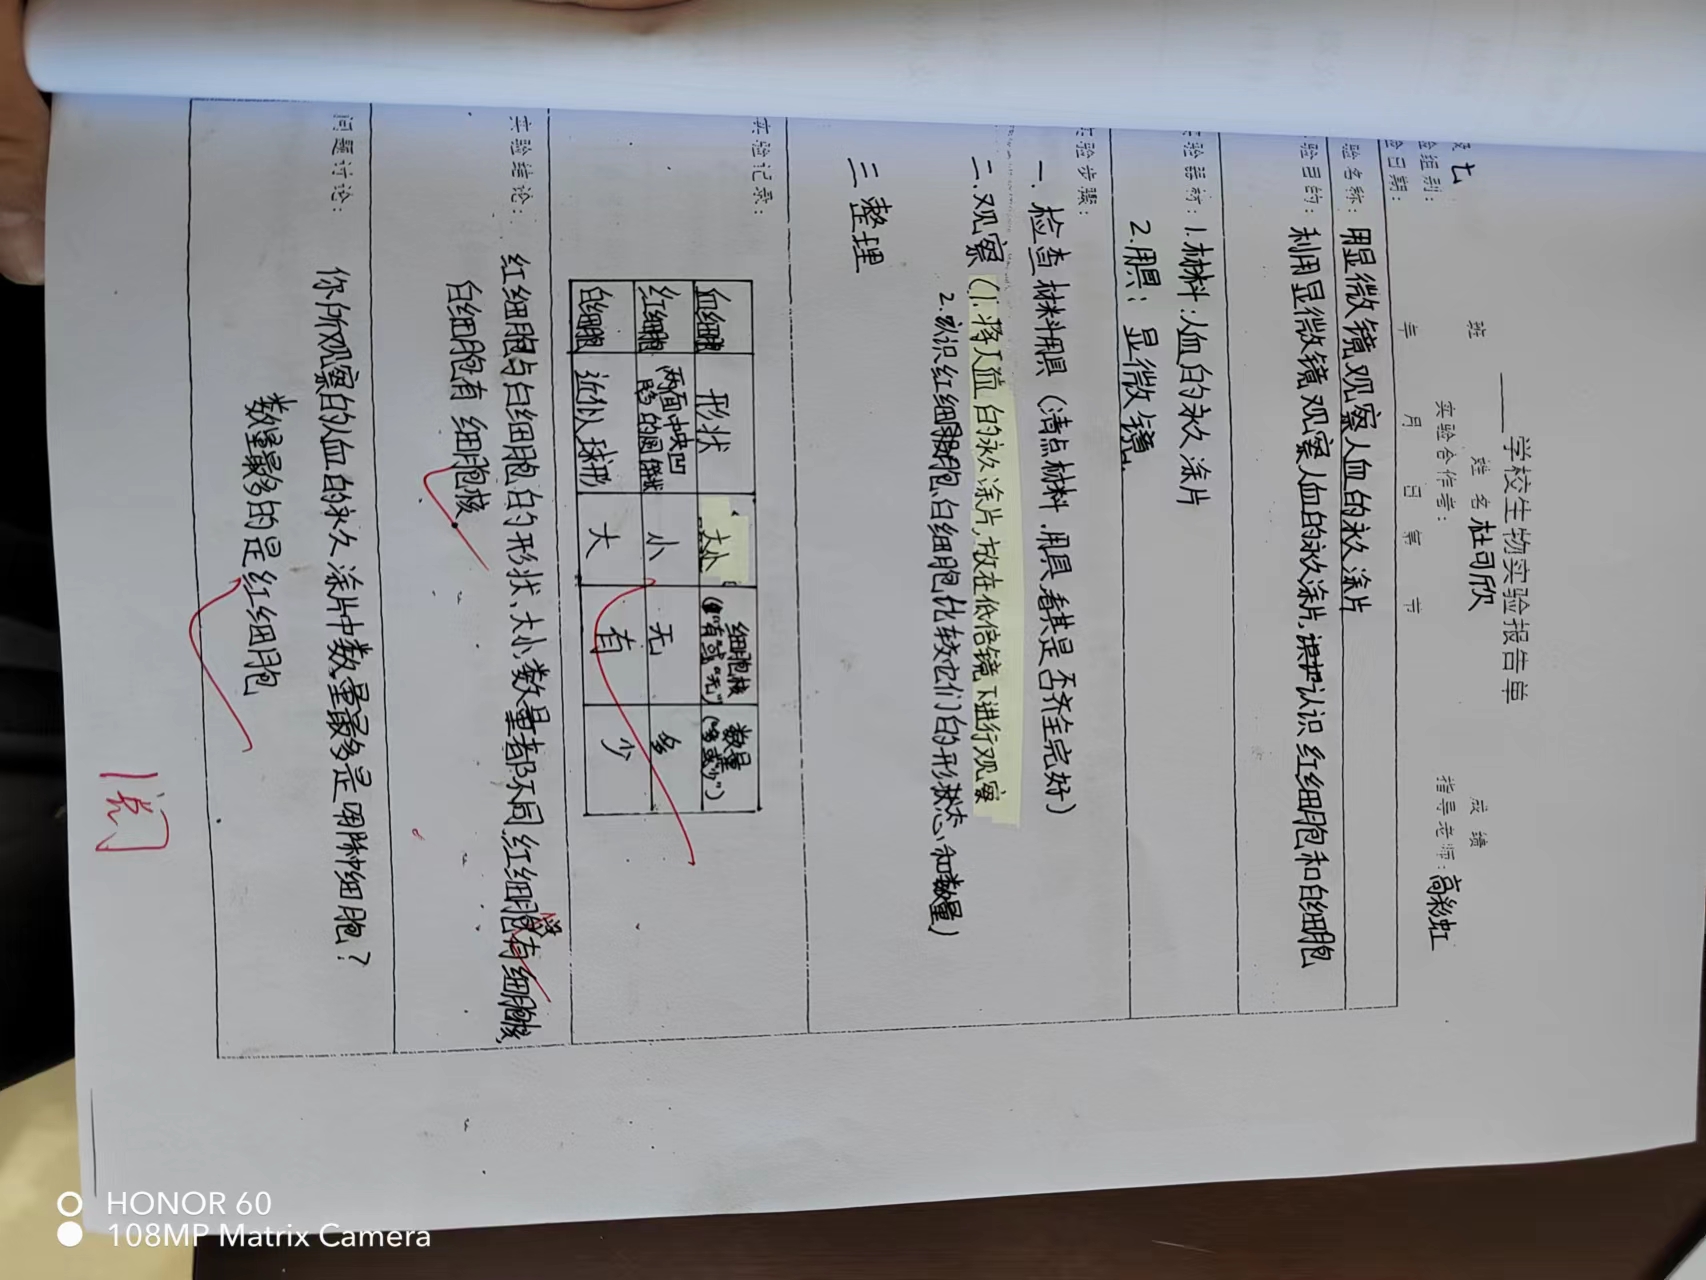 学校生物实验报告单
级 七 班 姓名 杜司欣 成绩
验组别： 实验合作者： 指导老师：高彩虹
验日期： 年 月 日 第 节
验名称：用显微镜观察人血的永久涂片
验目的：利用显微镜观察人血的永久涂片，认识红细胞和白细胞
验器材：1.材料：人血的永久涂片
2.用具：显微镜
验步骤：
一.检查材料用具（清点材料.用具,看其是否齐全完好）
二.观察（1.将人血的永久涂片,放在低倍镜下进行观察
2.认识红细胞、白细胞,比较它们的形状态、和数量）
三 整理
实验记录：
血细胞 形状 大小 细胞核（"有"或"无"） 数量（"多"或"少"）
红细胞 两面中央凹的圆饼状 小 无 多
白细胞 近似球形 大 有 少
实验结论：红细胞与白细胞的形状、大小、数量都不同,红细胞没有细胞核,
白细胞有细胞核
问题讨论：你所观察的人血的永久涂片中数量最多是哪种细胞？
数量最多的是红细胞
阅
HONOR 60
108MP Matrix Camera